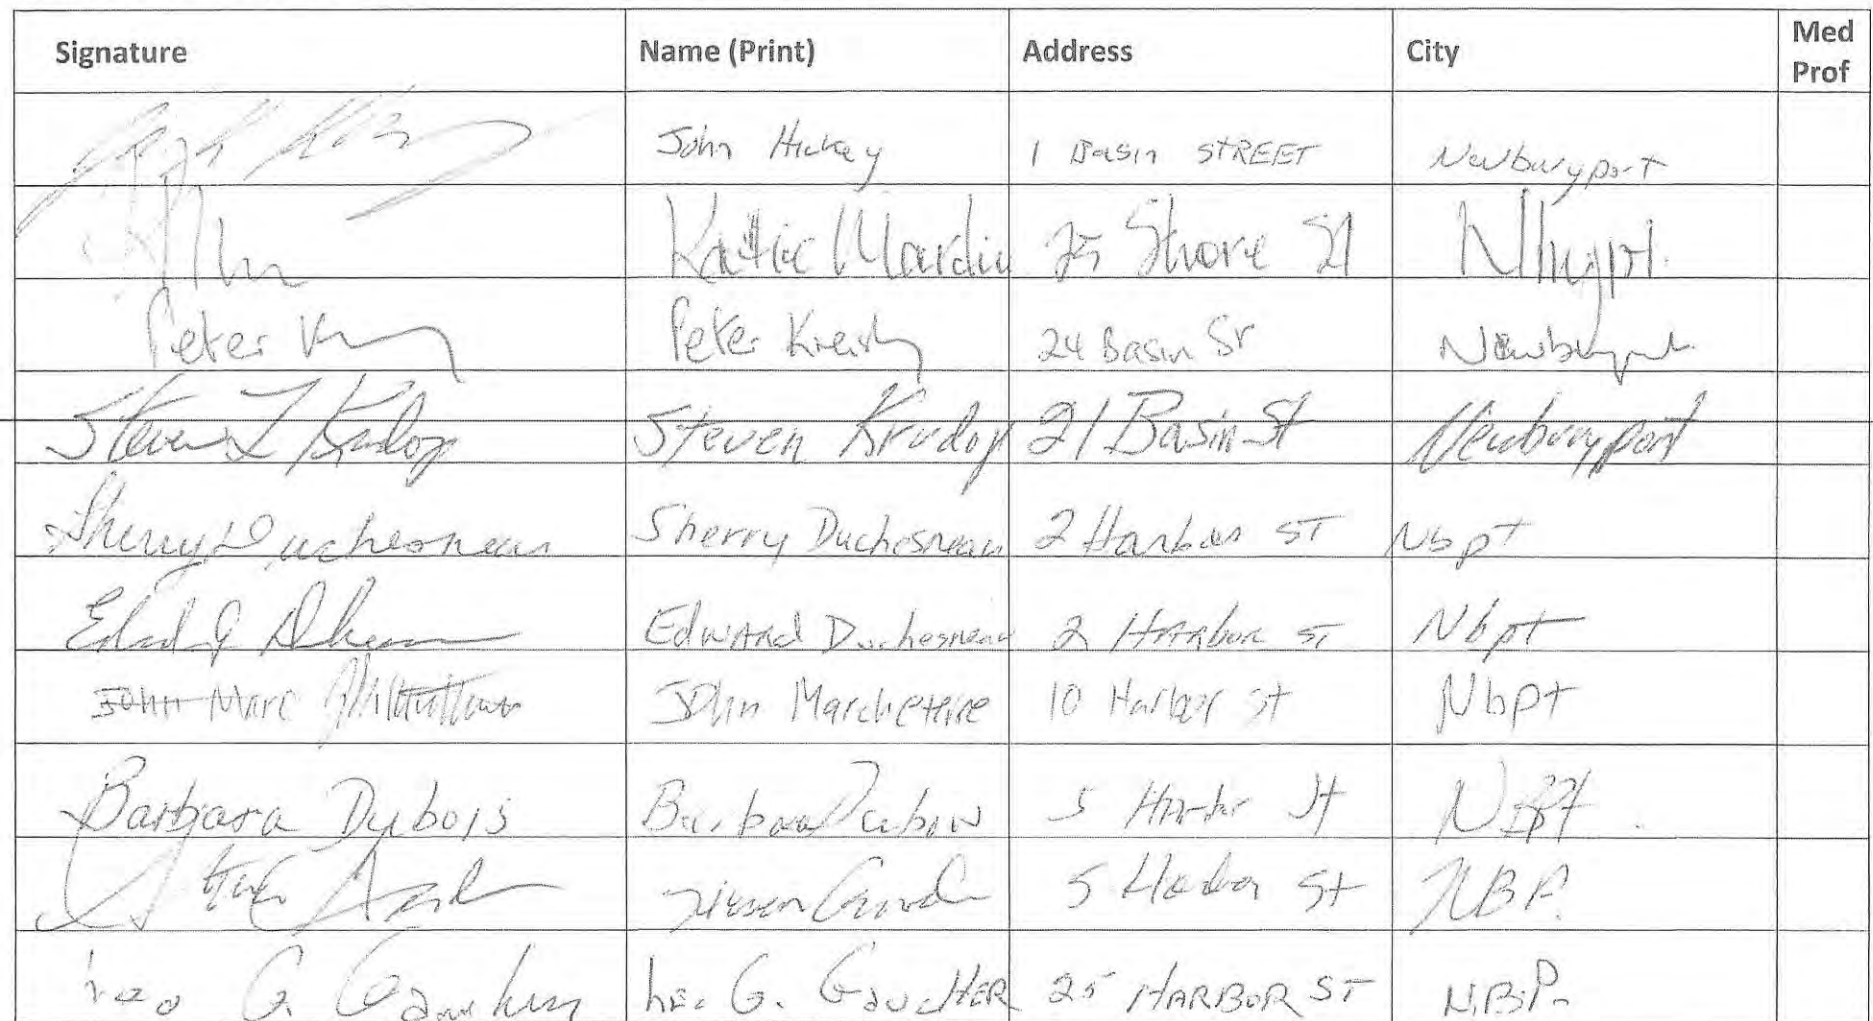 Signature Name (Print) Address City Med Prof
John Hickey 1 Basin STREET Newburyport
Katie 25 Shore St
Peter Peter 24 Basin St Newburyport
Steven L Krudop Steven Krudop 21 Basin St Newburyport
Sherry Duchesneau Sherry Duchesneau 2 Harbor ST Nbpt
Edward Duchesneau 2 Harbor ST Nbpt
John Marc John 10 Harbor st Nbpt
Barbara Dubois Barbara Dubois 5 Harbor St NBPT
5 Harbor St NBP.
Leo G. Gaucher Leo G. GaucHER 25 HARBOR ST N.B.P.